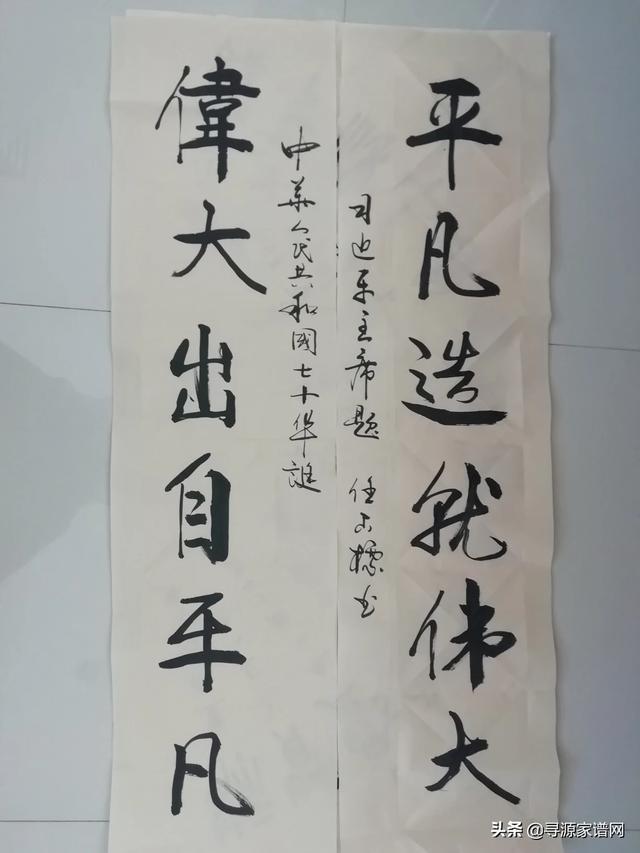 平凡造就伟大
习近平主席题 任标书
中華人民共和國七十华誕
偉大出自平凡
头条 @寻源家谱网